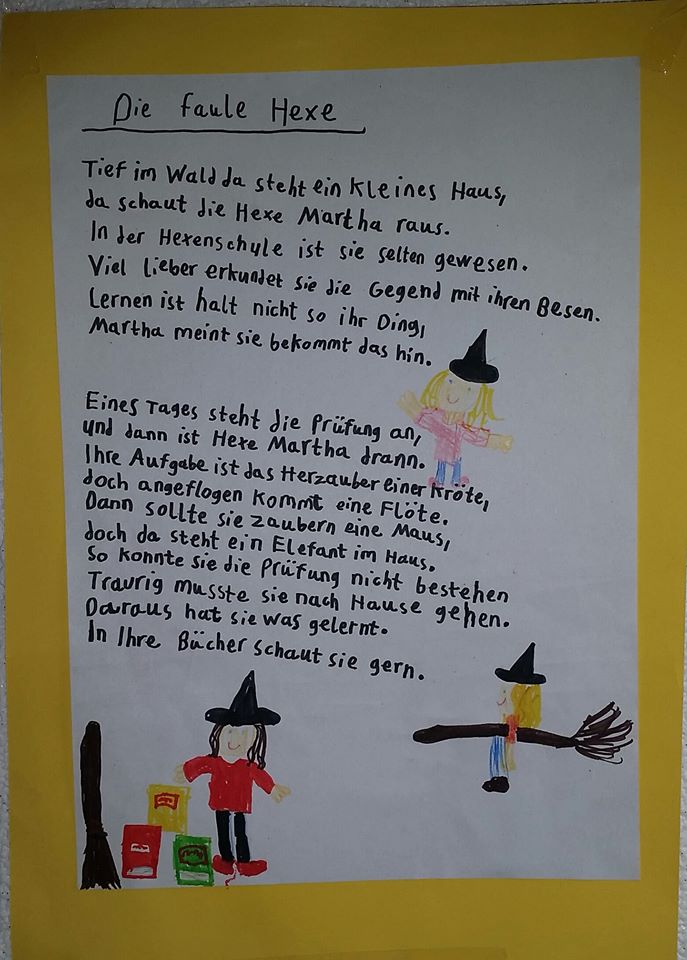 Die faule Hexe
Tief im Wald da steht ein kleines Haus,
da schaut die Hexe Martha raus.
In der Hexenschule ist sie selten gewesen.
Viel lieber erkundet sie die Gegend mit ihren Besen.
Lernen ist halt nicht so ihr Ding,
Martha meint sie bekommt das hin.
Eines Tages steht die Prüfung an,
und dann ist Hexe Martha drann.
Ihre Aufgabe ist das Herzauber einer Kröte,
doch angeflogen kommt eine Flöte.
Dann sollte sie zaubern eine Maus,
doch da steht ein Elefant im Haus.
So konnte sie die Prüfung nicht bestehen
Traurig musste sie nach Hause gehen.
Daraus hat sie was gelernt.
In Ihre Bücher schaut sie gern.